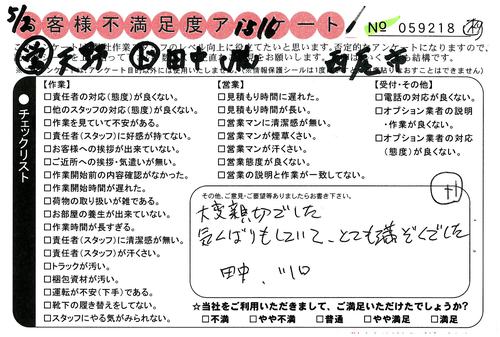 5/2
お客様不満足度アンケート!
1516
No 059218
営 天野 田中
西尾市
チェックリスト
【作業】
□責任者の対応(態度)が良くない。
□他のスタッフの対応(態度)が良くない。
□作業を見ていて不安がある。
□責任者(スタッフ)に好感が持てない。
□お客様への挨拶が出来ていない。
□ご近所への挨拶・気遣いが無い。
□作業開始前の内容確認がなかった。
□作業開始時間が遅れた。
□荷物の取り扱いが雑である。
□お部屋の養生が出来ていない。
□作業時間が長すぎる。
□責任者(スタッフ)に清潔感が無い。
□責任者(スタッフ)が汗くさい。
□トラックが汚い。
□梱包資材が汚い。
□運転が不安(下手)である。
□靴下の履き替えをしてない。
□スタッフにやる気がみられない。
【営業】
□見積もり時間に遅れた。
□見積もり時間が長い。
□営業マンに清潔感が無い。
□営業マンが煙草くさい。
□営業マンが汗くさい。
□営業態度が良くない。
□営業の説明と作業が一致してない。
【受付・その他】
□電話の対応が良くない。
□オプション業者の説明
・作業が良くない。
□オプション業者の対応
(態度)が良くない。
その他、ご意見・ご要望等ありましたらお書き下さい。
大変親切でした
気くばりもしていて、とても満ぞくでした
田中、
☆当社をご利用いただきまして、ご満足いただけたでしょうか?
□不満 □やや不満 □普通 □やや満足 □満足